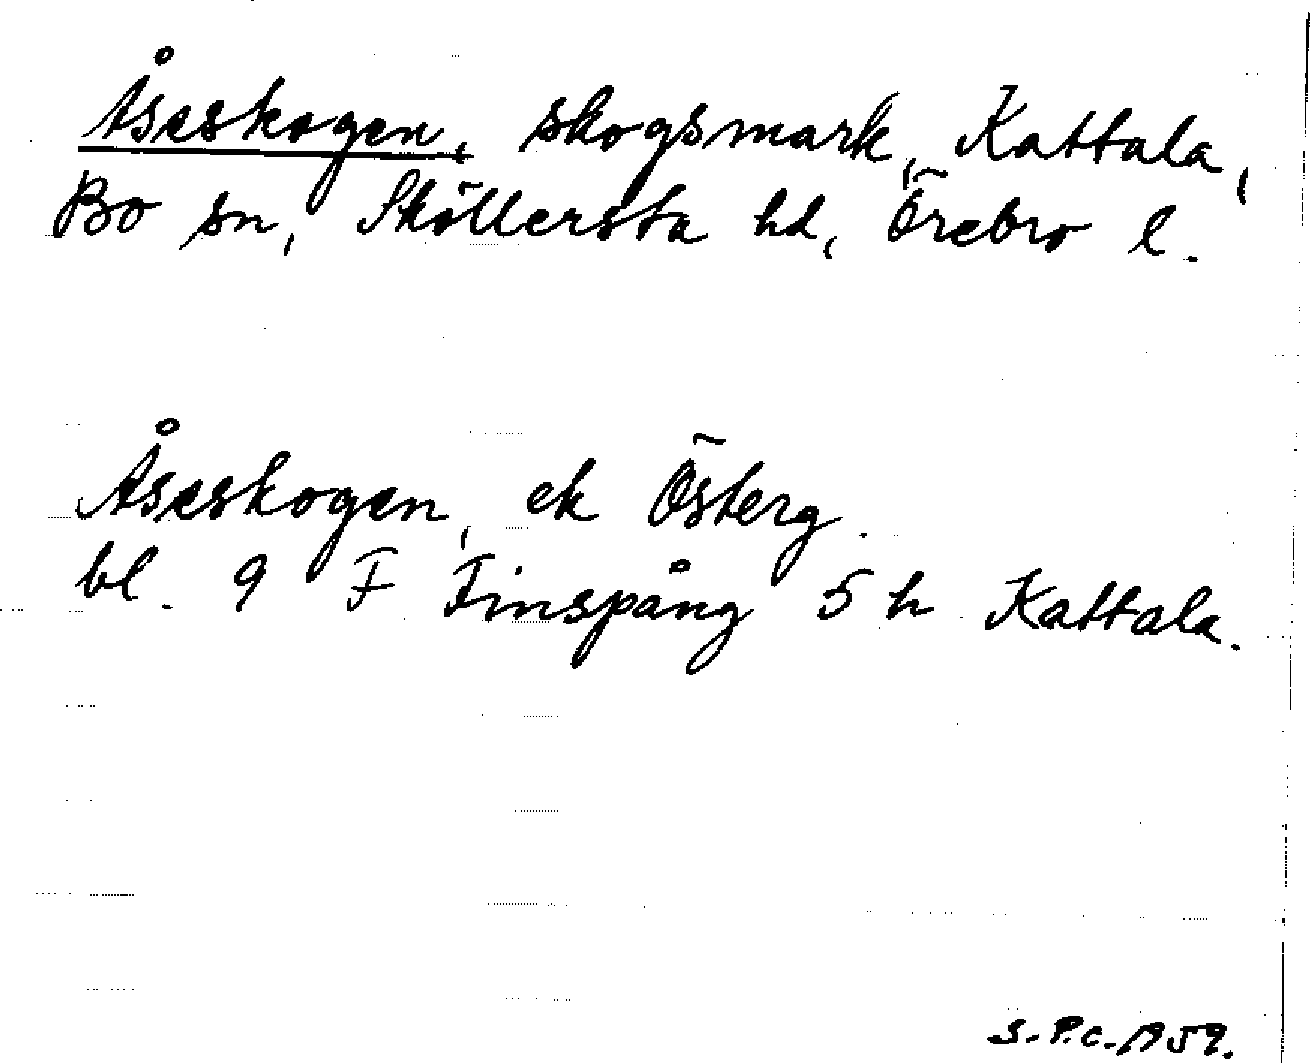 Åseskogen, skogsmark, Kattala,
Bo sn, Sköllersta hd, Örebro l.
Åseskogen, ek Österg.
bl. 9 F Finspång 5 h Kattala.
S.P.C. 1959.